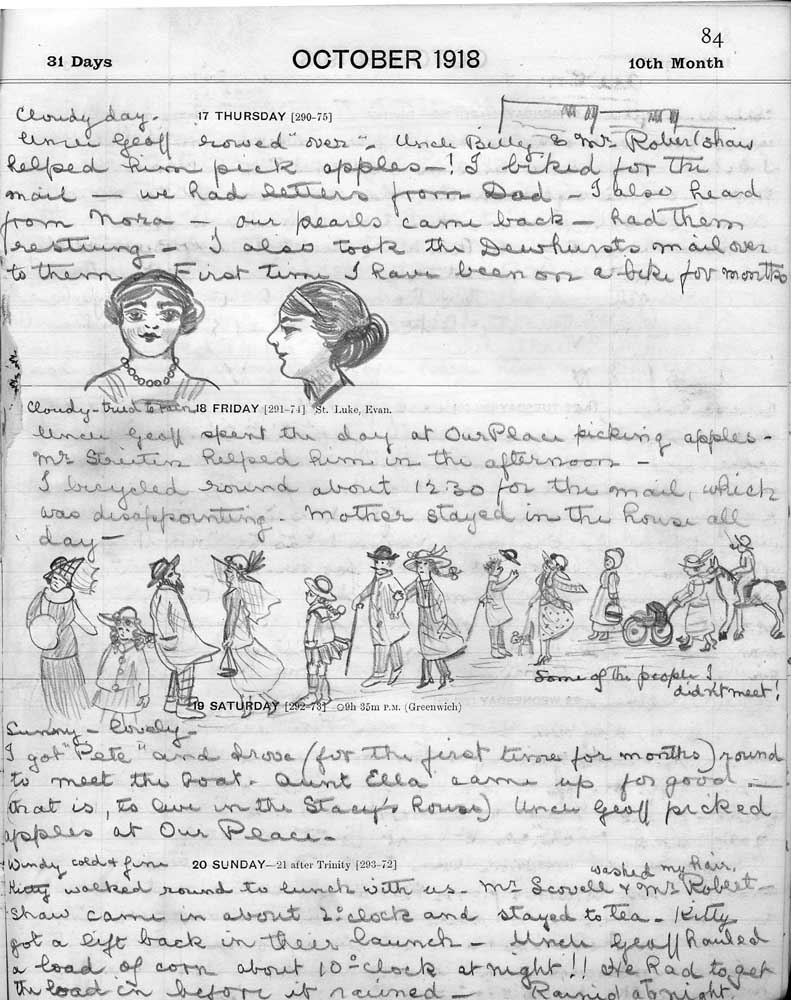 84
31 Days OCTOBER 1918 10th Month
Cloudy day. 17 THURSDAY [290-75]
Uncle Geoff rowed "over". Uncle Billy & Mr. Robertshaw
helped him pick apples—! I biked for the
mail — we had letters from Dad — I also heard
from Nora — our pearls came back — had them
restrung — I also took the Dewhursts mail over
to them. First time I have been on a bike for months
Cloudy – tried to rain 18 FRIDAY [291-74] St. Luke, Evan.
Uncle Geoff spent the day at Our Place picking apples.
Mr. helped him in the afternoon —
I bicycled round about 12 30 for the mail, which
was disappointing. Mother stayed in the house all
day —
Some of the people I
didn't meet!
19 SATURDAY [292-73] 9h 35m P.M. (Greenwich)
Sunny – lovely –
I got "Pete" and drove (for the first time for months) round
to meet the boat. Aunt Ella came up for good —
(that is, to live in the Stacy's house) Uncle Geoff picked
apples at Our Place.
Windy cold & fine 20 SUNDAY—21 after Trinity [293-72] washed my hair.
Kitty walked round to lunch with us. Mr Scovell & Mr Robert-
shaw came in about 2 o'clock and stayed to tea. Kitty
got a lift back in their launch — Uncle Geoff hauled
a load of corn about 10 o'clock at night!! He had to get
the load in before it rained — Rained at night